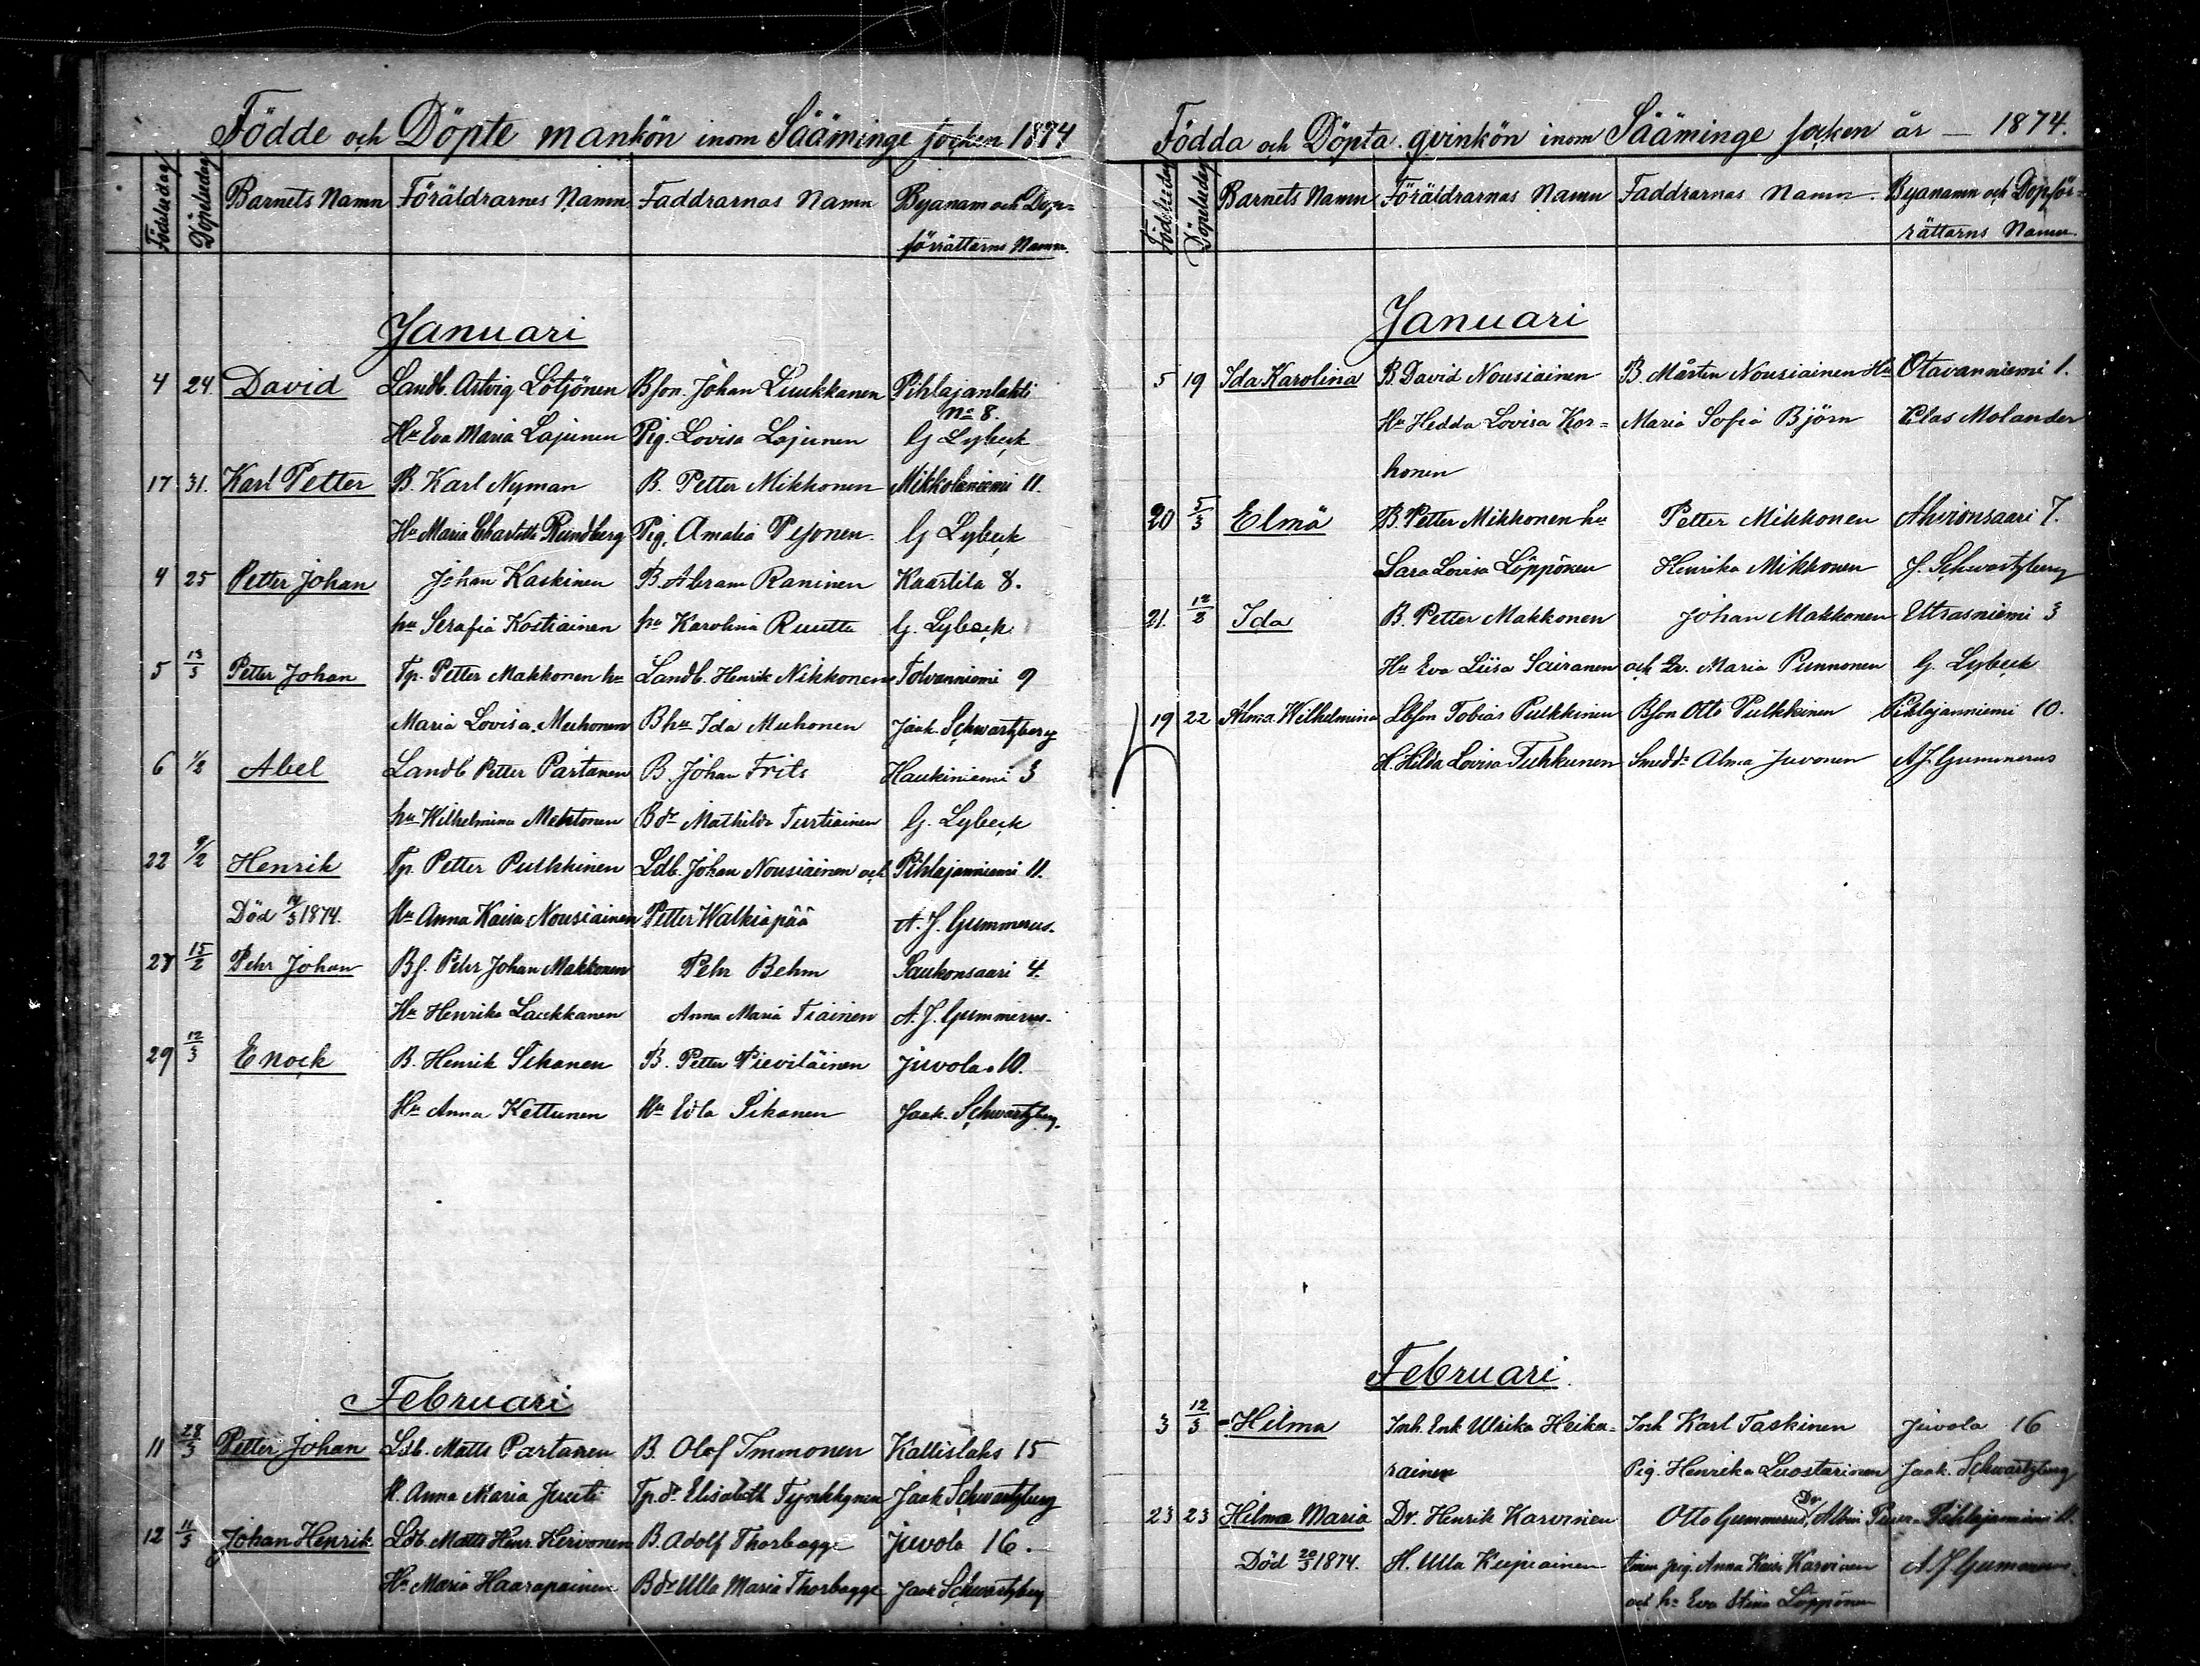 Födde och Döpte mankön inom Sääminge socken 1874
Födelsedag
Döpelsedag
Barnets Namn Föräldrarnes Namn Faddrarnas Namn Byanam och Dop=
förrättarns Namn.
Januari
4 24. David Landb. Artvig Lötjönen Bson. Johan Luukkanen Pihlajanlahti
No 8.
Hu Eva Maria Lajunen Pig. Lovisa Lajunen G Lybeck
17 31. Karl Petter B. Karl Nyman B. Petter Mikkonen Mikkolaniemi 11.
Hu Maria Charlotta Rundberg Pig. Amalia Pesonen G Lybeck
4 25 Petter Johan Johan Kaskinen B. Abram Raninen Kaartila 8.
hu Serafia Kostiainen hu Karolina Ruutta G. Lybeck
5 13/3 Petter Johan Tp. Petter Makkonen hu Landb. Henrik Nikkonen Tolvanniemi 9
Maria Lovisa Muhonen Bhu Ida Muhonen Jaak. Schwartzberg
6 1/2 Abel Landb Petter Partanen B. Johan Frits Haukiniemi 3
hu Wilhelmina Mehtonen Bdr Mathilda Turtiainen G. Lybeck
22 9/2 Henrik Tp. Petter Pulkkinen Ldb. Johan Nousiainen och Pihlajaniemi 11.
Död 14/3 1874. Hu Anna Kaisa Nousiainen Petter Walkiapää A. J. Gummerus.
27 15/2 Pehr Johan Bs. Pehr Johan Makkonen Pehr Behm Saukonsaari 4.
Hu Henrika Laukkanen Anna Maria Tiainen A. J. Gummerus.
29 12/3 Enock B. Henrik Sikanen B. Petter Pieviläinen Juvola 10.
Hu Anna Kettunen Hu Edla Sikanen Jaak. Schwartzberg.
Februari
11 28/3 Petter Johan Ldb. Matts Partanen B. Olof Immonen Kallislaks 15
H. Anna Maria Juuti Tp. dr Elisabeth Tynkkynen Jaak Schwartzberg
12 11/3 Johan Henrik Ldb. Matts Henr. Hirvonen B. Adolf Thorbagge Juvola 16.
Hu Maria Haarapainen Bdr Ulla Maria Thorbagge Jaak Schwartzberg
Födda och Döpta qvinkön inom Sääminge socken år – 1874.
Födelsedag
Döpelsedag
Barnets Namn Föräldrarnas Namn Faddrarnas Namn. Byanamn och Döpför=
rättarns Namn.
Januari
5 19 Ida Karolina B. David Nousiainen B. Mårten Nousiainen Hu Otavanniemi 1.
Hu Hedda Lovisa Kor= Maria Sofia Björn Elas Molander
honen
20 5/3 Elmä B. Petter Mikkonen hu Petter Mikkonen Ahvionsaari 7.
Sara Lovisa Löppönen Henrika Mikkonen J. Schwartzberg
21. 12/2 Ida B. Petter Makkonen Johan Makkonen Uttrasniemi 3
Hu Eva Liisa Sairanen och Dr. Maria Punnonen G. Lybeck
19 22 Alma Wilhelmina Lbson Tobias Pulkkinen Bson Otto Pulkkinen Pihlajanniemi 10.
H. Hilda Lovisa Tuhkunen Smeddr Alma Juvonen A J. Gummerus
Februari.
3 12/3 Hilma Inh. Enk Ulrika Heika= Inh Karl Taskinen Juvola 16
rainen Pig. Henrika Luostarinen Jaak. Schwartzberg
23 23 Hilma Maria Dr. Henrik Karvinen Otto Gummerus, Dr Albin Pihlajaniemi 11.
Död 20/3 1874. H. Ulla Kupiainen pig. Anna Kaisa Karvinen A J Gummerus.
och hu Eva Stina Löppönen